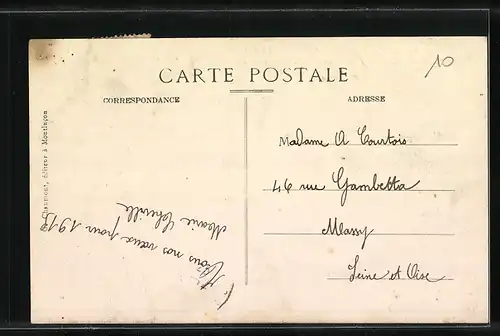 10
CARTE POSTALE
CORRESPONDANCE
ADRESSE
Madame A Courtois
46 rue Gambetta
Massy
Seine et Oise
Tous nos vœux pour 1913
Marie
Chaumont, éditeur à Montluçon